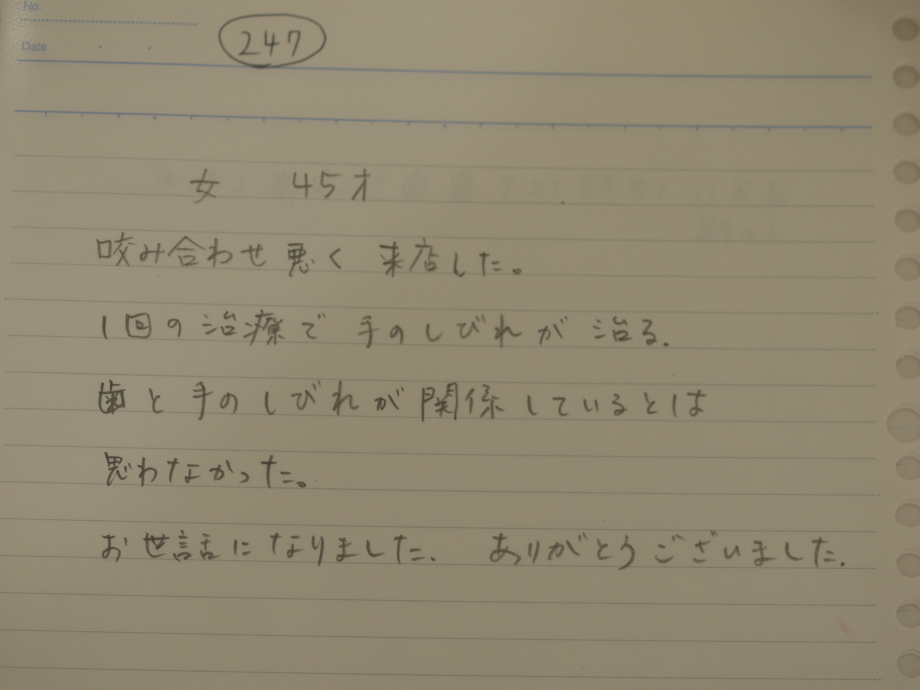 No.
Date
247
女 45才
咬み合わせ悪く 来店した。
1回の治療で 手のしびれが 治る.
歯と 手のしびれが 関係しているとは
思わなかった。
お世話になりました. ありがとうございました.